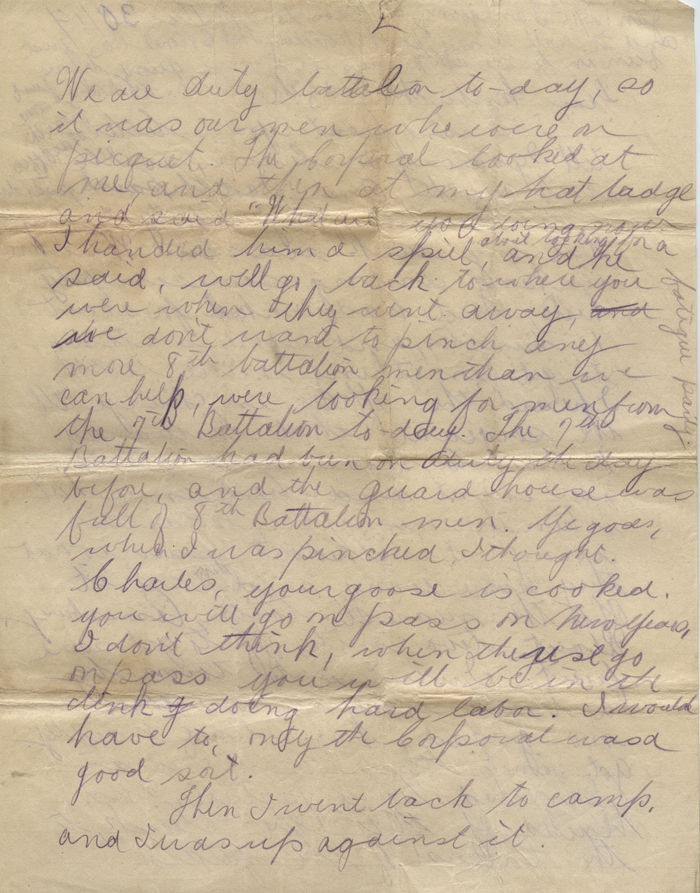 2
We are duty battalion to-day, so
it was our men who were on
picquet. The Corporal looked at
me, and then at my hat badge
and said "What are you doing now
I handed him a spiel, about looking for a fatigue party
and he
said, well go back to where you
were when they went away, and
we don't want to pinch any
more 8th battalion men than we
can help, were looking for men from
the 7th Battalion to-day. The 7th
Battalion had been on duty the day
before, and the guard house was
full of 8th Battalion men. Ye gods,
when I was pinched, I thought.
Charles, your goose is cooked.
you will go on pass on New Years,
I don't think, when the rest go
on pass you will be in the
clink doing hard labor. I would
have to, only the Corporal was a
good sort.
Then I went back to camp,
and I was up against it.